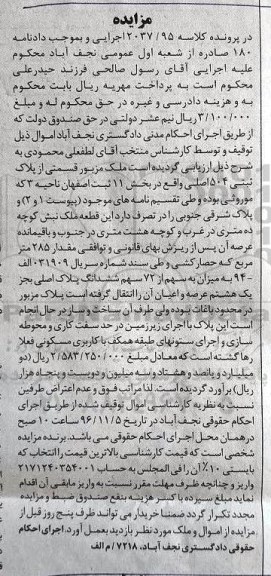 مزایده
در پرونده کلاسه ۲۰۳۷/۹۵ اجرایی و بموجب دادنامه
۱۸۰ صادره از شعبه اول عمومی نجف آباد محکوم
علیه اجرایی آقای رسول صالحی فرزند حیدرعلی
محکوم است به پرداخت مهریه ریال بابت محکوم
به و هزینه دادرسی و غیره در حق محکوم له و مبلغ
۳/۱۰۰/۰۰۰ ریال نیم عشر دولتی در حق صندوق دولت که
از طریق اجرای احکام مدنی دادگستری نجف آباد اموال ذیل
توقیف و توسط کارشناس منتخب آقای لطفعلی محمودی به
شرح ذیل ارزیابی گردیده است ملک مزبور قسمتی از پلاک
ثبتی ۵۰۴ اصلی واقع در بخش ۱۱ ثبت اصفهان ناحیه ۳ که
موروثی بوده و طی تقسیم نامه های موجود (پیوست ۱ و ۲) و
پلاک شرقی جنوبی را در تصرف دارد این قطعه ملک نبش کوچه
ده متری در غرب و کوچه هشت متری در جنوب و باقیمانده
عرصه آن پس از ریزش بهای قانونی و توافقی مقدار ۲۸۵ متر
مربع که حصارکشی و طی سند شماره سریال ۰۳۱۹۰۹ الف
-۹۴ به میزان به سهم از ۷۲ سهم ششدانگ پلاک اصلی بجز
یک هشتم عرصه و اعیان آن را انتقال گرفته است پلاک مزبور
در محدوده باغات بوده ولی طرف آن ساخت و ساز در حال انجام
است این پلاک با اجرای زیرزمین در حد سفت کاری و محوطه
سازی و اجرای ستونهای طبقه همکف با کاربری مسکونی فعلا
رها گشته است که معادل مبلغ ۲/۵۸۳/۲۵۰/۰۰۰ ریال (دو
میلیارد و پانصد و هشتاد و سه میلیون و دویست و پنجاه هزار
ریال) برآورد گردیده است. لذا مراتب فوق و عدم اعتراض طرفین
نسبت به نظریه کارشناسی اموال توقیف شده از طریق اجرای
احکام حقوقی نجف آباد در تاریخ ۹۶/۱۱/۵ ساعت ۱۰ صبح
در همان محل اجرای احکام حقوقی می باشد. برنده مزایده
شخصی است که قیمت کارشناسی بالاترین قیمت را انتخاب که
بایستی ۱۰٪ آن را فی المجلس به حساب ۲۱۷۱۲۴۰۳۵۴۰۰۱
واریز و چنانچه ظرف مهلت مقرر نسبت به واریز مابقی آن اقدام
نماید مبلغ سپرده با کسر هزینه بنفع صندوق ضبط و مزایده
مجدد تکرار گردد ضمنا خریدار می تواند ظرف پنج روز قبل از
مزایده از اموال و ملک مورد نظر بازدید بعمل آورد. اجرای احکام
حقوقی دادگستری نجف آباد، ۷۲۱۸/م الف